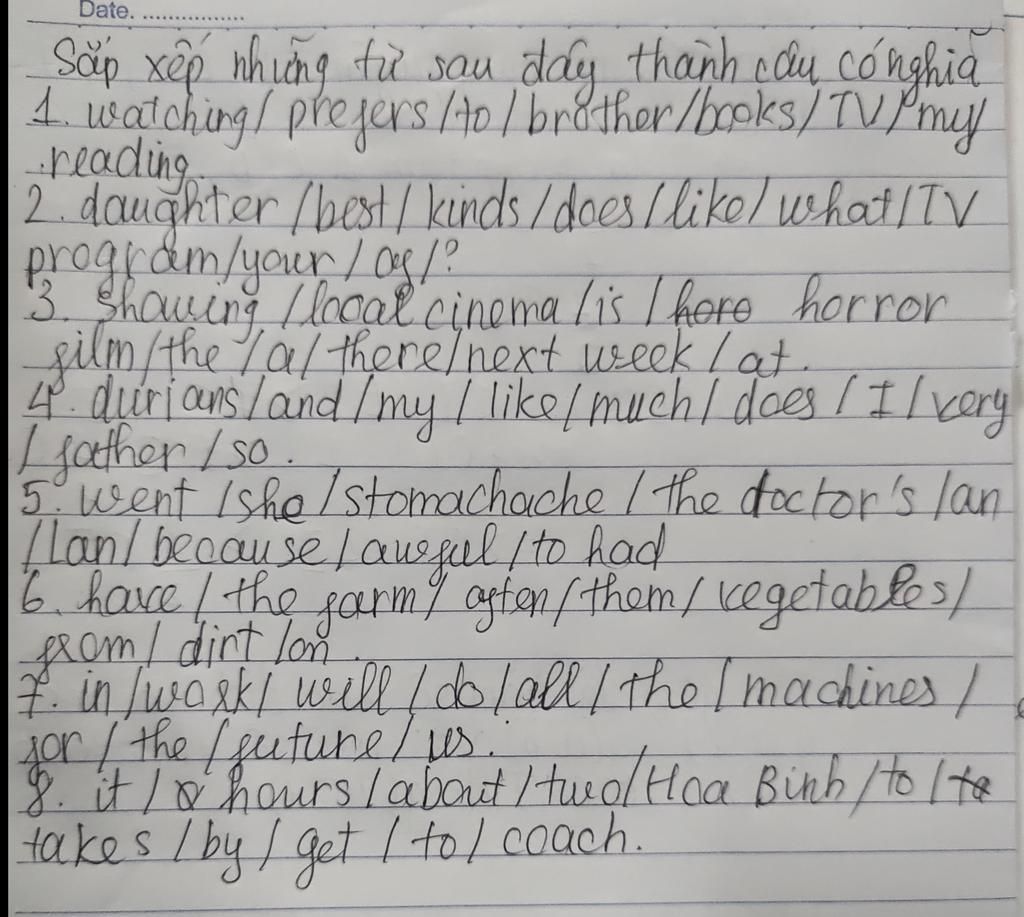 Date. ................
Sắp xếp những từ sau đây thành câu có nghĩa
1. watching/ prefers/to/brother/books/TV/my
reading.
2. daughter/best/kinds/does/like/what/TV
program/your/of/?
3. showing/local cinema/is/ horror
film/the/a/there/next week/at.
4. durians/and/my/like/much/does/I/very
/father/so.
5. went/she/stomachache/the doctor's/an
/Lan/because/awful/to had
6. have/the farm/often/them/vegetables/
from/dirt/on.
7. in/work/will/do/all/the/machines/
for/the/future/us.
8. it/ hours/about/two/Hoa Binh/to/
takes/by/get/to/coach.